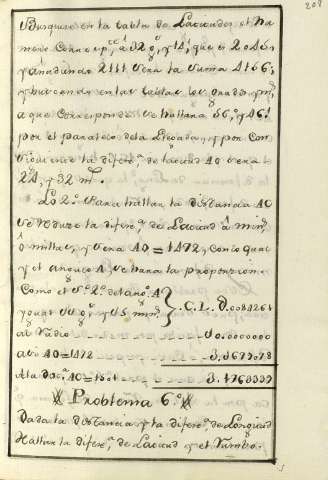 208
Busquese en la tabla de Laciones el Nu
mero Corresp.te â 32 g.s y 14', que es 2045
y añadiendo 2111 será la suma 4156;
y buscando en las tablas los grados, y m.s
a que Corresponde se hallara 56.º y 46'
por el paralelo de la llegada, y por Con
siguiente la difer.ª de latitud AO será
24, y 32 m.
Lo 2º Para hallar la distancia AC
se reduze la difer.ª de Latitud â min.s
ô millas, y será AO = 1472, con lo qual
y el angulo A se hará la proporcion
Como el S.º 2.º del ang.º A
C. L. 0.
al Radio 10.0000000
asi AO = 1472 3.1679078
A la dis.ª AC =
Problema 6º
Dada la distancia y la difer.ª de Longitud
Hallar la difer.ª de Latitud y el Rumbo.